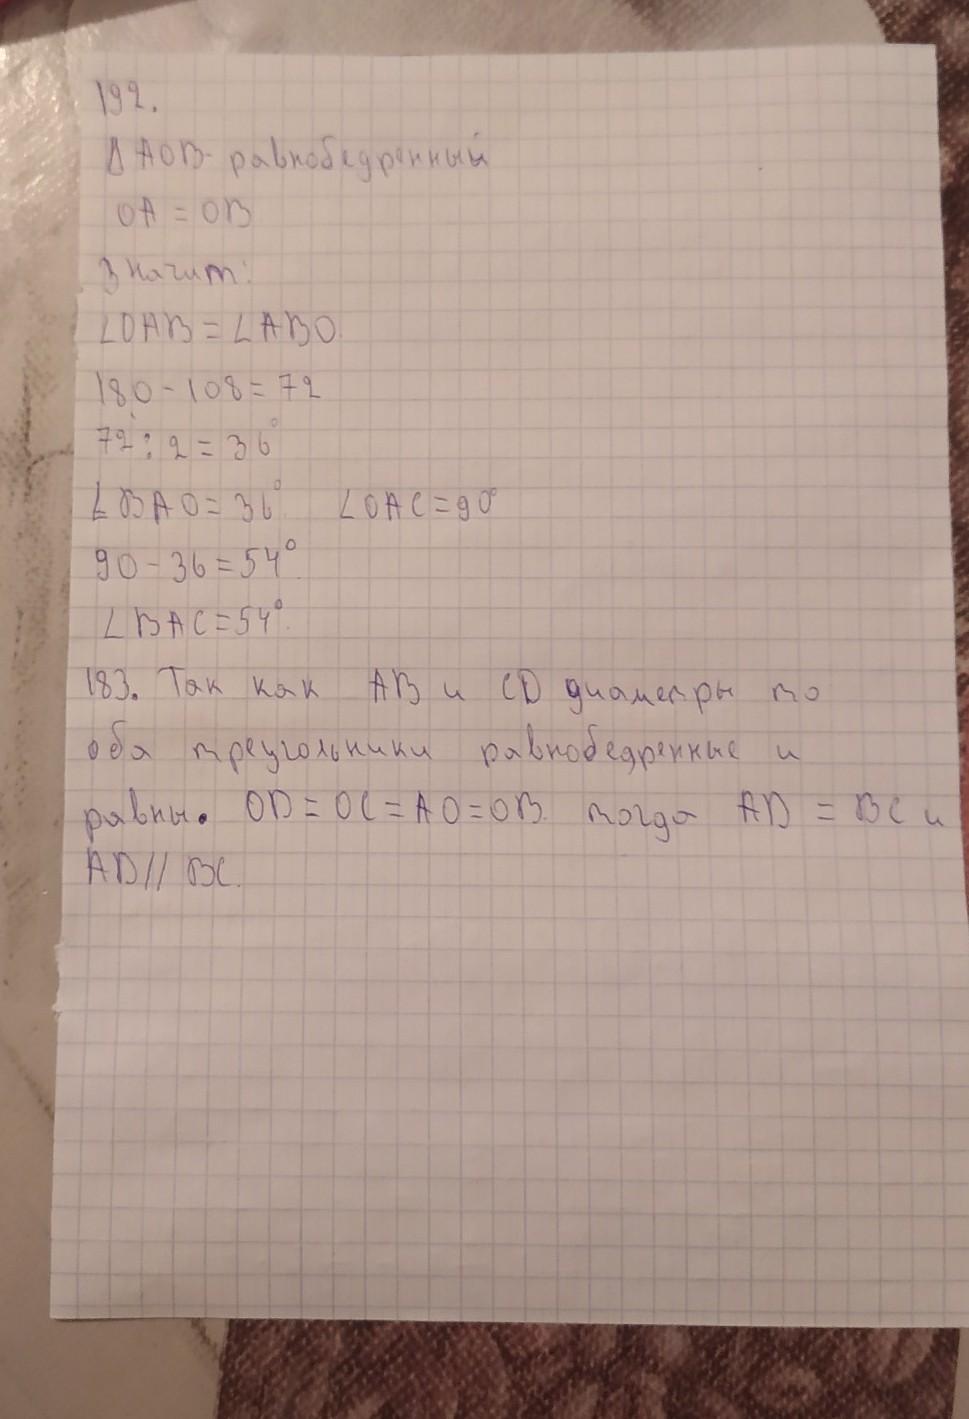 192.
Δ AOB - равнобедренный
OA = OB
Значит:
∠OAB = ∠ABO.
180 - 108 = 72
72 : 2 = 36°
∠BAO = 36° ∠OAC = 90°
90 - 36 = 54°.
∠BAC = 54°.
183. Так как AB и CD диаметры то
оба треугольники равнобедренные и
равны. OD = OC = AO = OB. тогда AD = BC и
AD // BC.